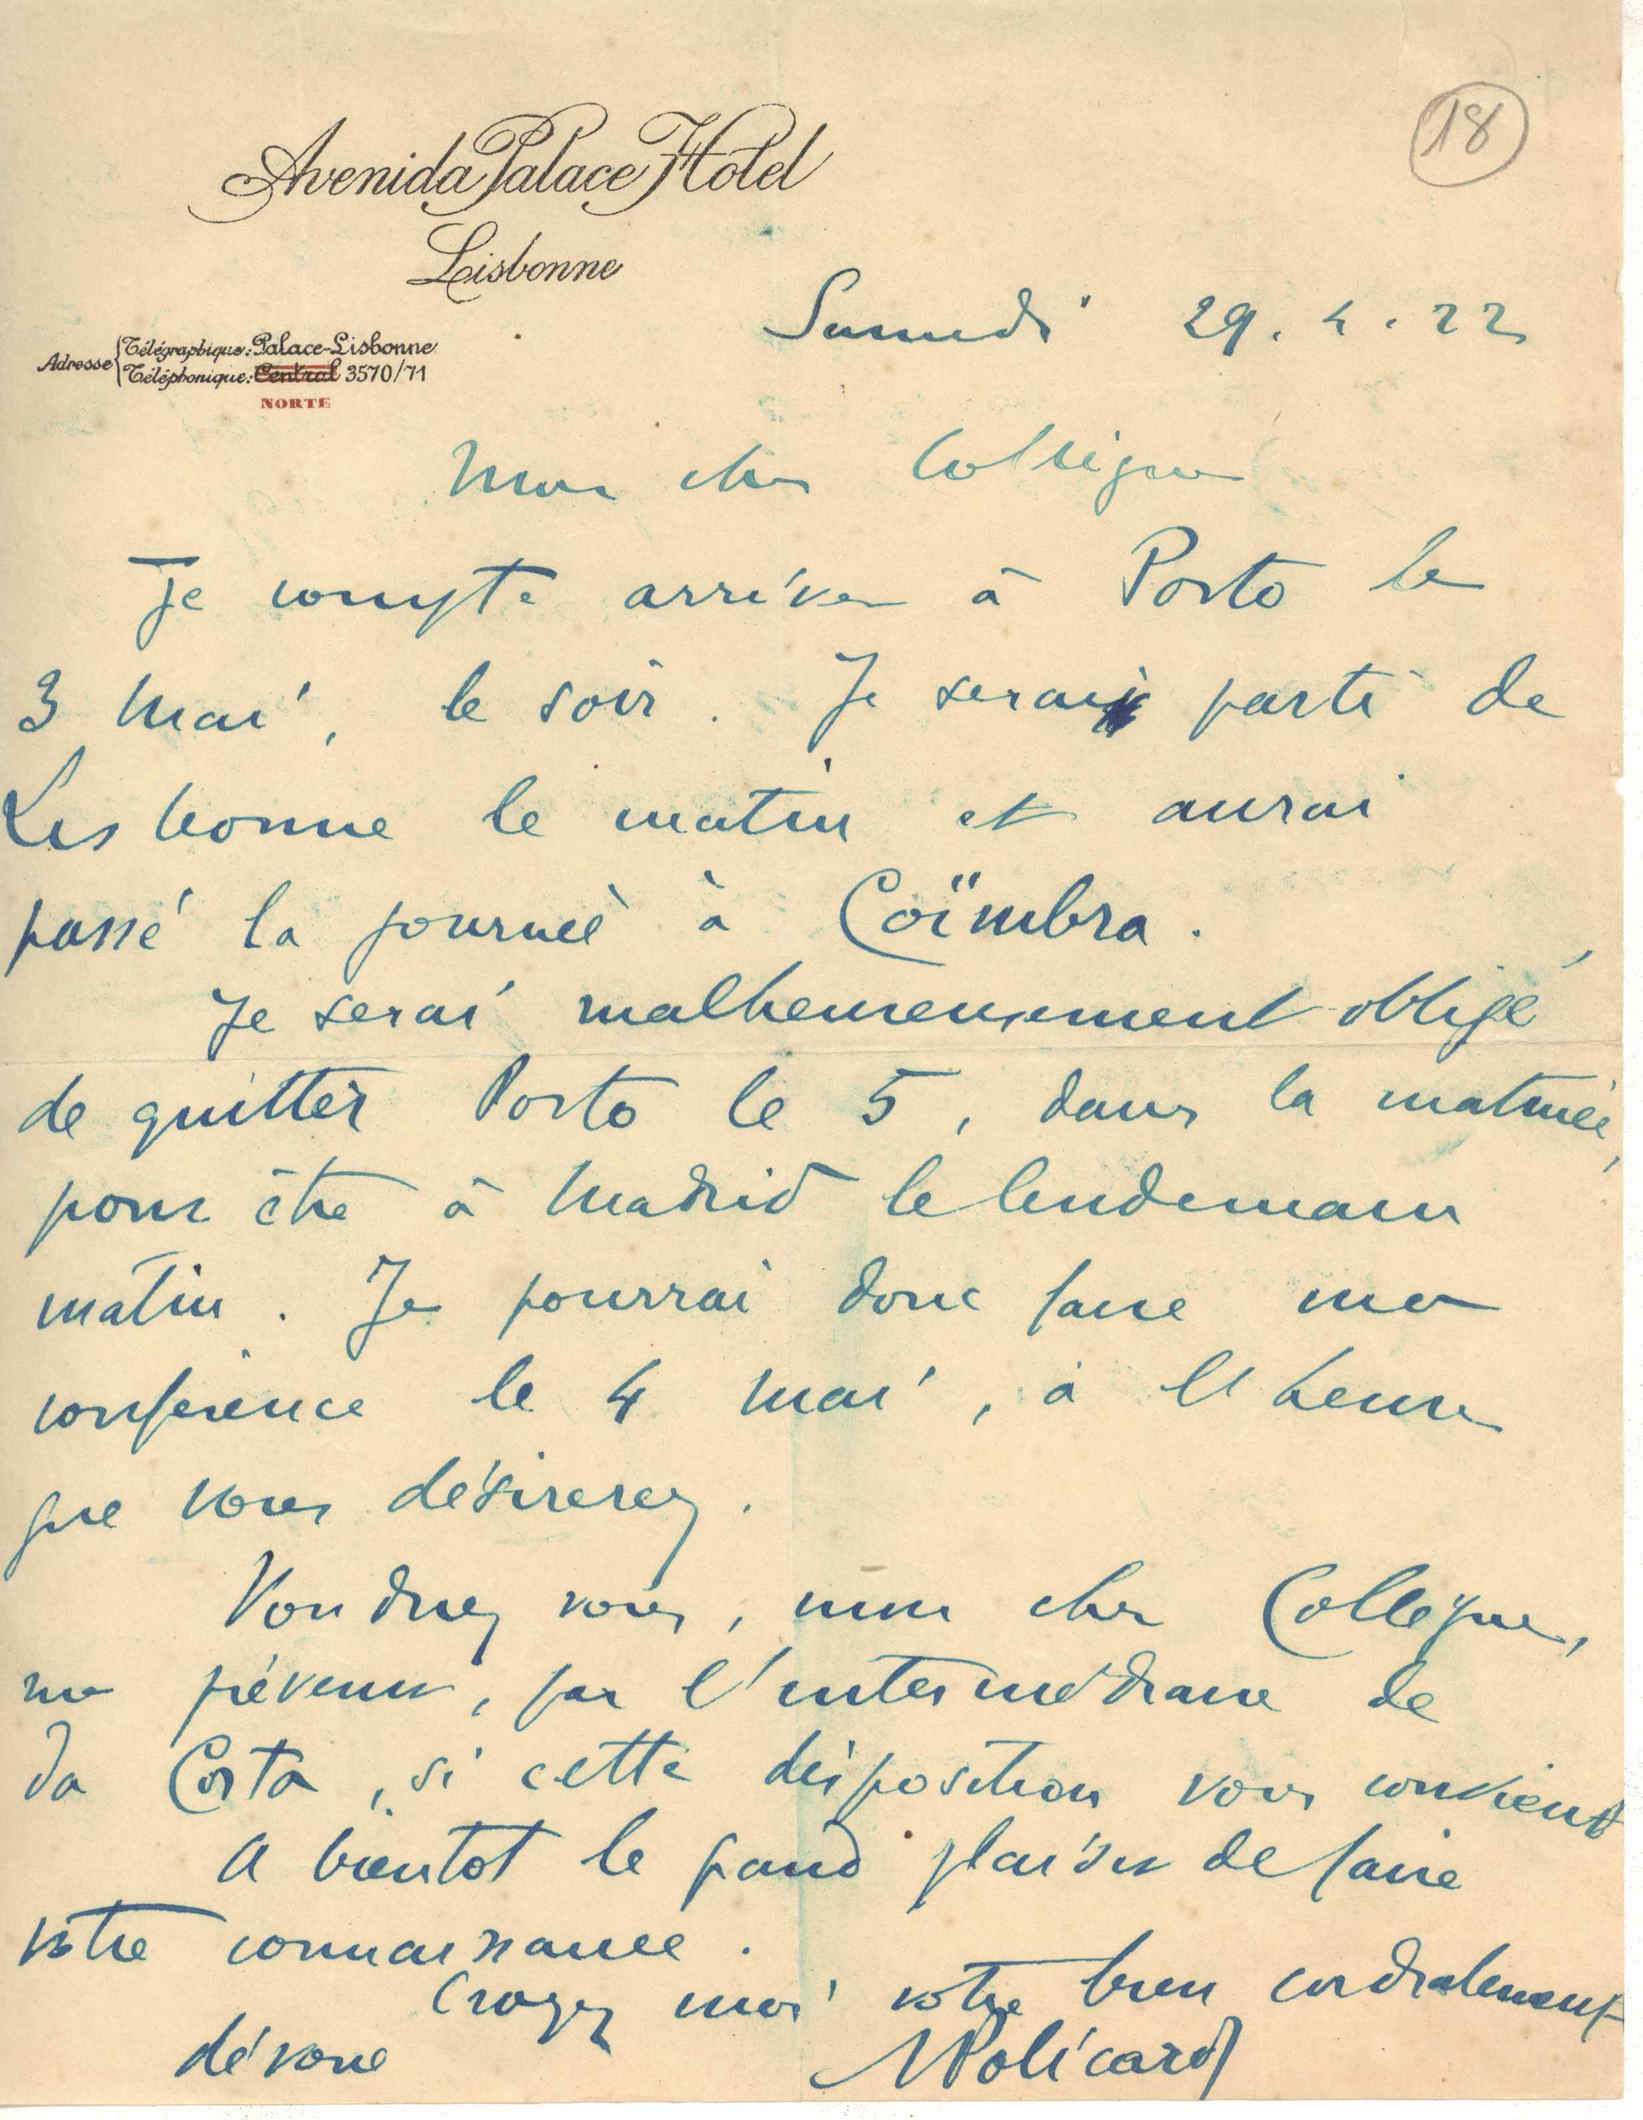 18
Avenida Palace Hotel
Lisbonne
Adresse { Télégraphique: Palace-Lisbonne
Téléphonique: Central 3570/71
NORTE
Samedi 29.4.22
Mon cher Collègue
Je compte arriver à Porto le
3 Mai, le soir. Je serai parti de
Lisbonne le matin et aurai
passé la journée à Coïmbra.
Je serai malheureusement obligé
de quitter Porto le 5, dans la matinée,
pour être à Madrid le lendemain
matin. Je pourrai donc faire ma
conférence le 4 Mai, à l'heure
que vous désirerez.
Voudriez vous, mon cher Collègue,
me prévenir, par l'intermédiaire de
da Costa, si cette disposition vous convient
A bientot le grand plaisir de faire
votre connaissance.
Croyez moi votre bien cordialement
dévoué
Policard